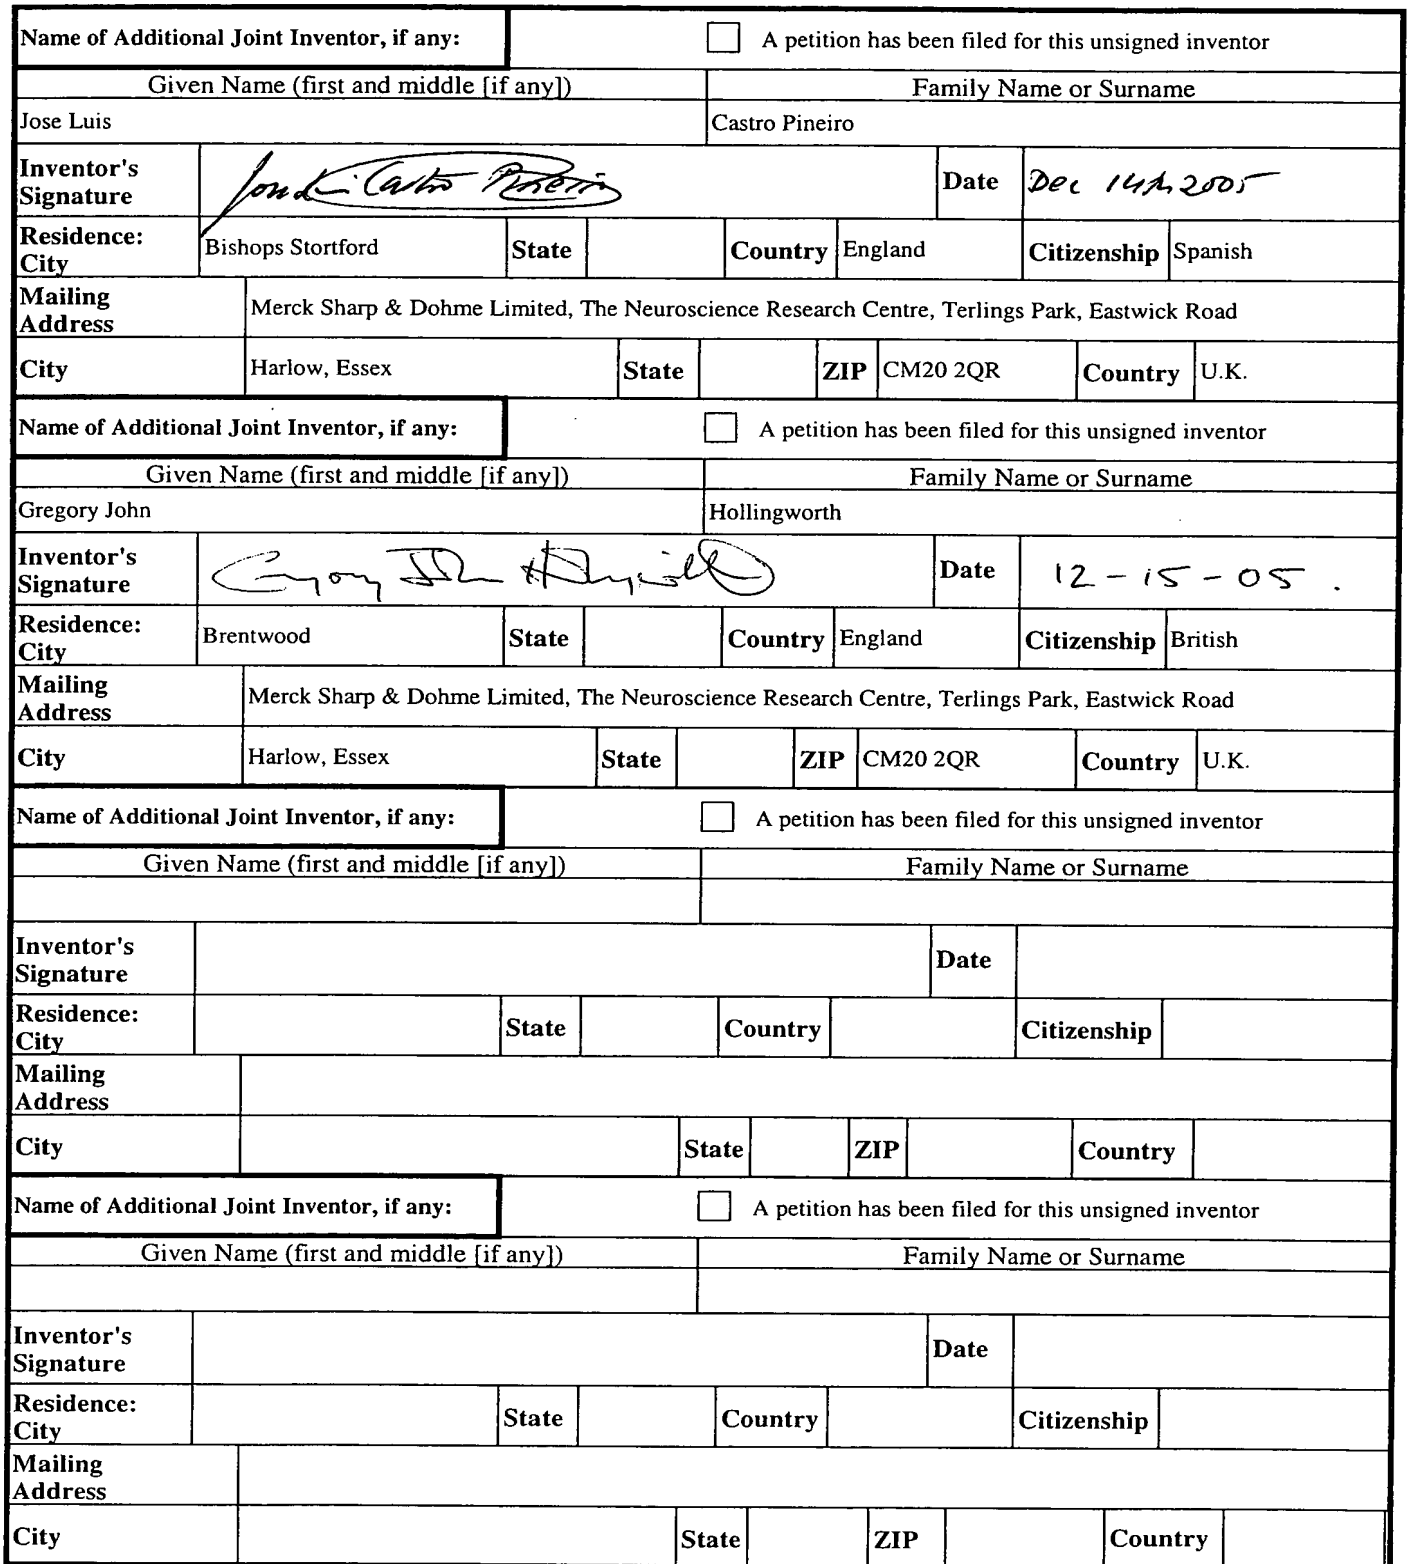 Name of Additional Joint Inventor, if any: A petition has been filed for this unsigned inventor
Given Name (first and middle [if any]) Family Name or Surname
Jose Luis Castro Pineiro
Inventor's Signature Jose Luis Castro Pineiro Date Dec 14th 2005
Residence: City Bishops Stortford State Country England Citizenship Spanish
Mailing Address Merck Sharp & Dohme Limited, The Neuroscience Research Centre, Terlings Park, Eastwick Road
City Harlow, Essex State ZIP CM20 2QR Country U.K.
Name of Additional Joint Inventor, if any: A petition has been filed for this unsigned inventor
Given Name (first and middle [if any]) Family Name or Surname
Gregory John Hollingworth
Inventor's Signature Gregory John Hollingworth Date 12-15-05.
Residence: City Brentwood State Country England Citizenship British
Mailing Address Merck Sharp & Dohme Limited, The Neuroscience Research Centre, Terlings Park, Eastwick Road
City Harlow, Essex State ZIP CM20 2QR Country U.K.
Name of Additional Joint Inventor, if any: A petition has been filed for this unsigned inventor
Given Name (first and middle [if any]) Family Name or Surname
Inventor's Signature Date
Residence: City State Country Citizenship
Mailing Address
City State ZIP Country
Name of Additional Joint Inventor, if any: A petition has been filed for this unsigned inventor
Given Name (first and middle [if any]) Family Name or Surname
Inventor's Signature Date
Residence: City State Country Citizenship
Mailing Address
City State ZIP Country